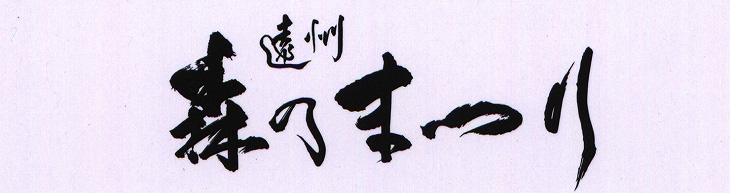 遠州
森乃まつり